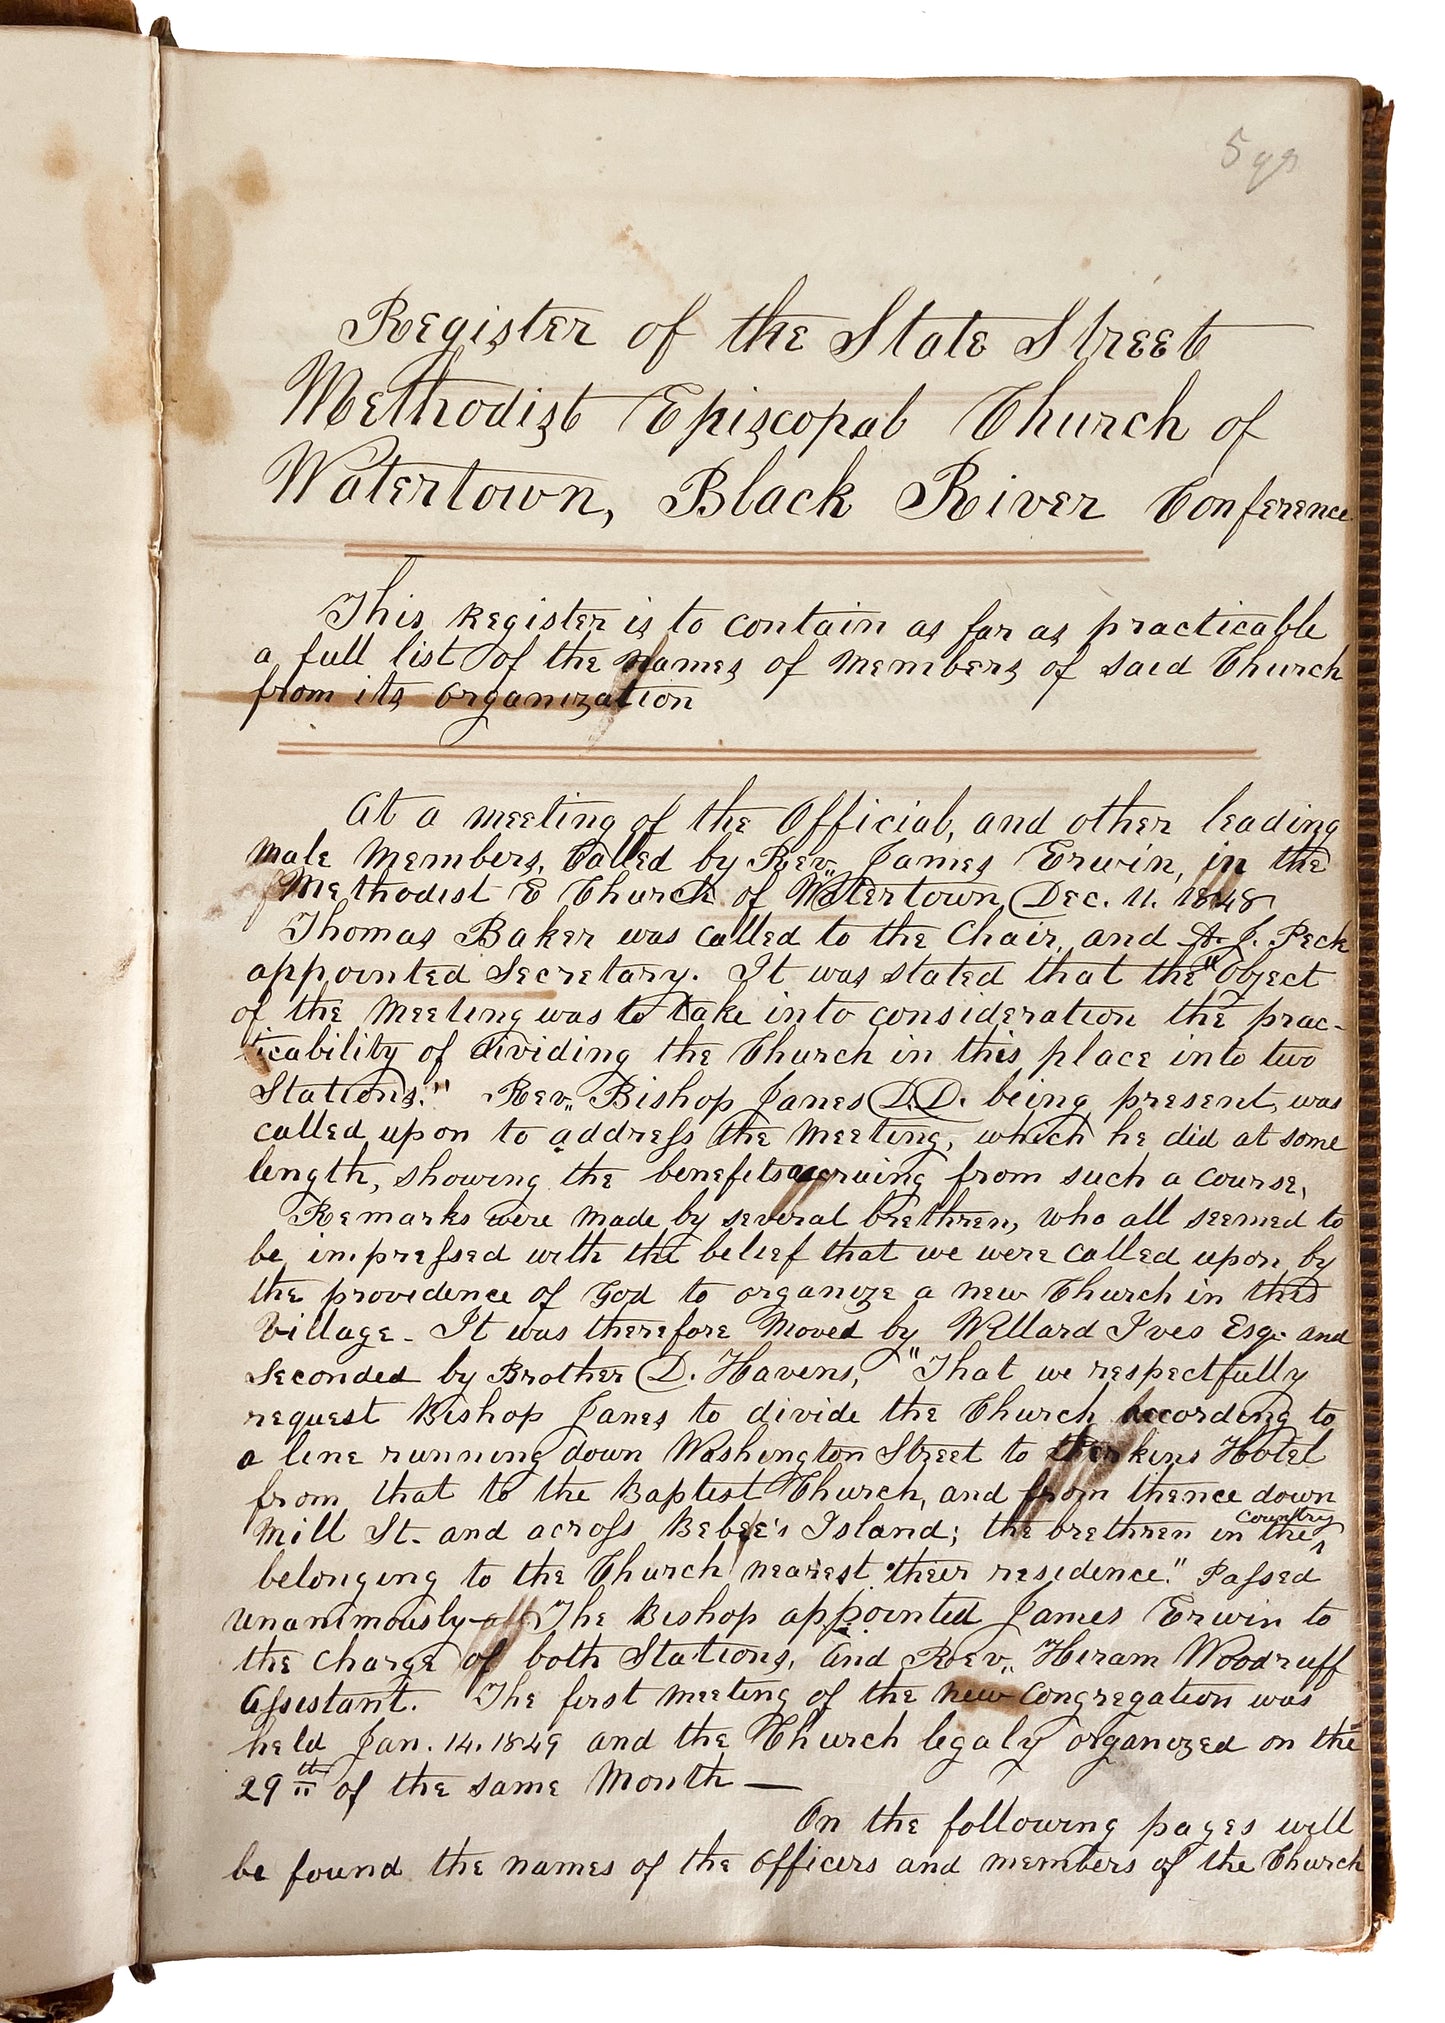 Register of the State Street
Methodist Episcopal Church of
Watertown, Black River Conference
This Register is to contain as far as practicable
a full list of the names of members of said Church
from its organization
At a meeting of the Official, and other leading
male members, Called by Rev,, James Erwin, in the
Methodist E Church of Watertown Dec. 11. 1848
Thomas Baker was called to the Chair, and A. J. Peck
appointed Secretary. It was stated that the "object
of the meeting was to take into consideration the prac-
ticability of dividing the Church in this place into two
Stations." Rev,, Bishop Janes D.D. being present, was
called upon to address the meeting, which he did at some
length, showing the benefits accruing from such a course,
Remarks were made by several brethren, who all seemed to
be impressed with the belief that we were called upon by
the providence of God to organize a new Church in this
Village - It was therefore moved by Willard Ives Esq. and
Seconded by Brother D. Havens, "That we respectfully
request Bishop Janes to divide the Church according to
a line running down Washington Street to Perkins Hotel
from that to the Baptist Church, and from thence down
Mill St. and across Bebee's Island; the brethren in the country
belonging to the Church nearest their residence." Passed
unanimously The Bishop appointed James Erwin to
the charge of both Stations, and Rev,, Hiram Woodruff
Assistant. The first meeting of the new congregation was
held Jan. 14. 1849 and the Church legaly organized on the
29th of the same Month —
On the following pages will
be found the names of the officers and members of the Church